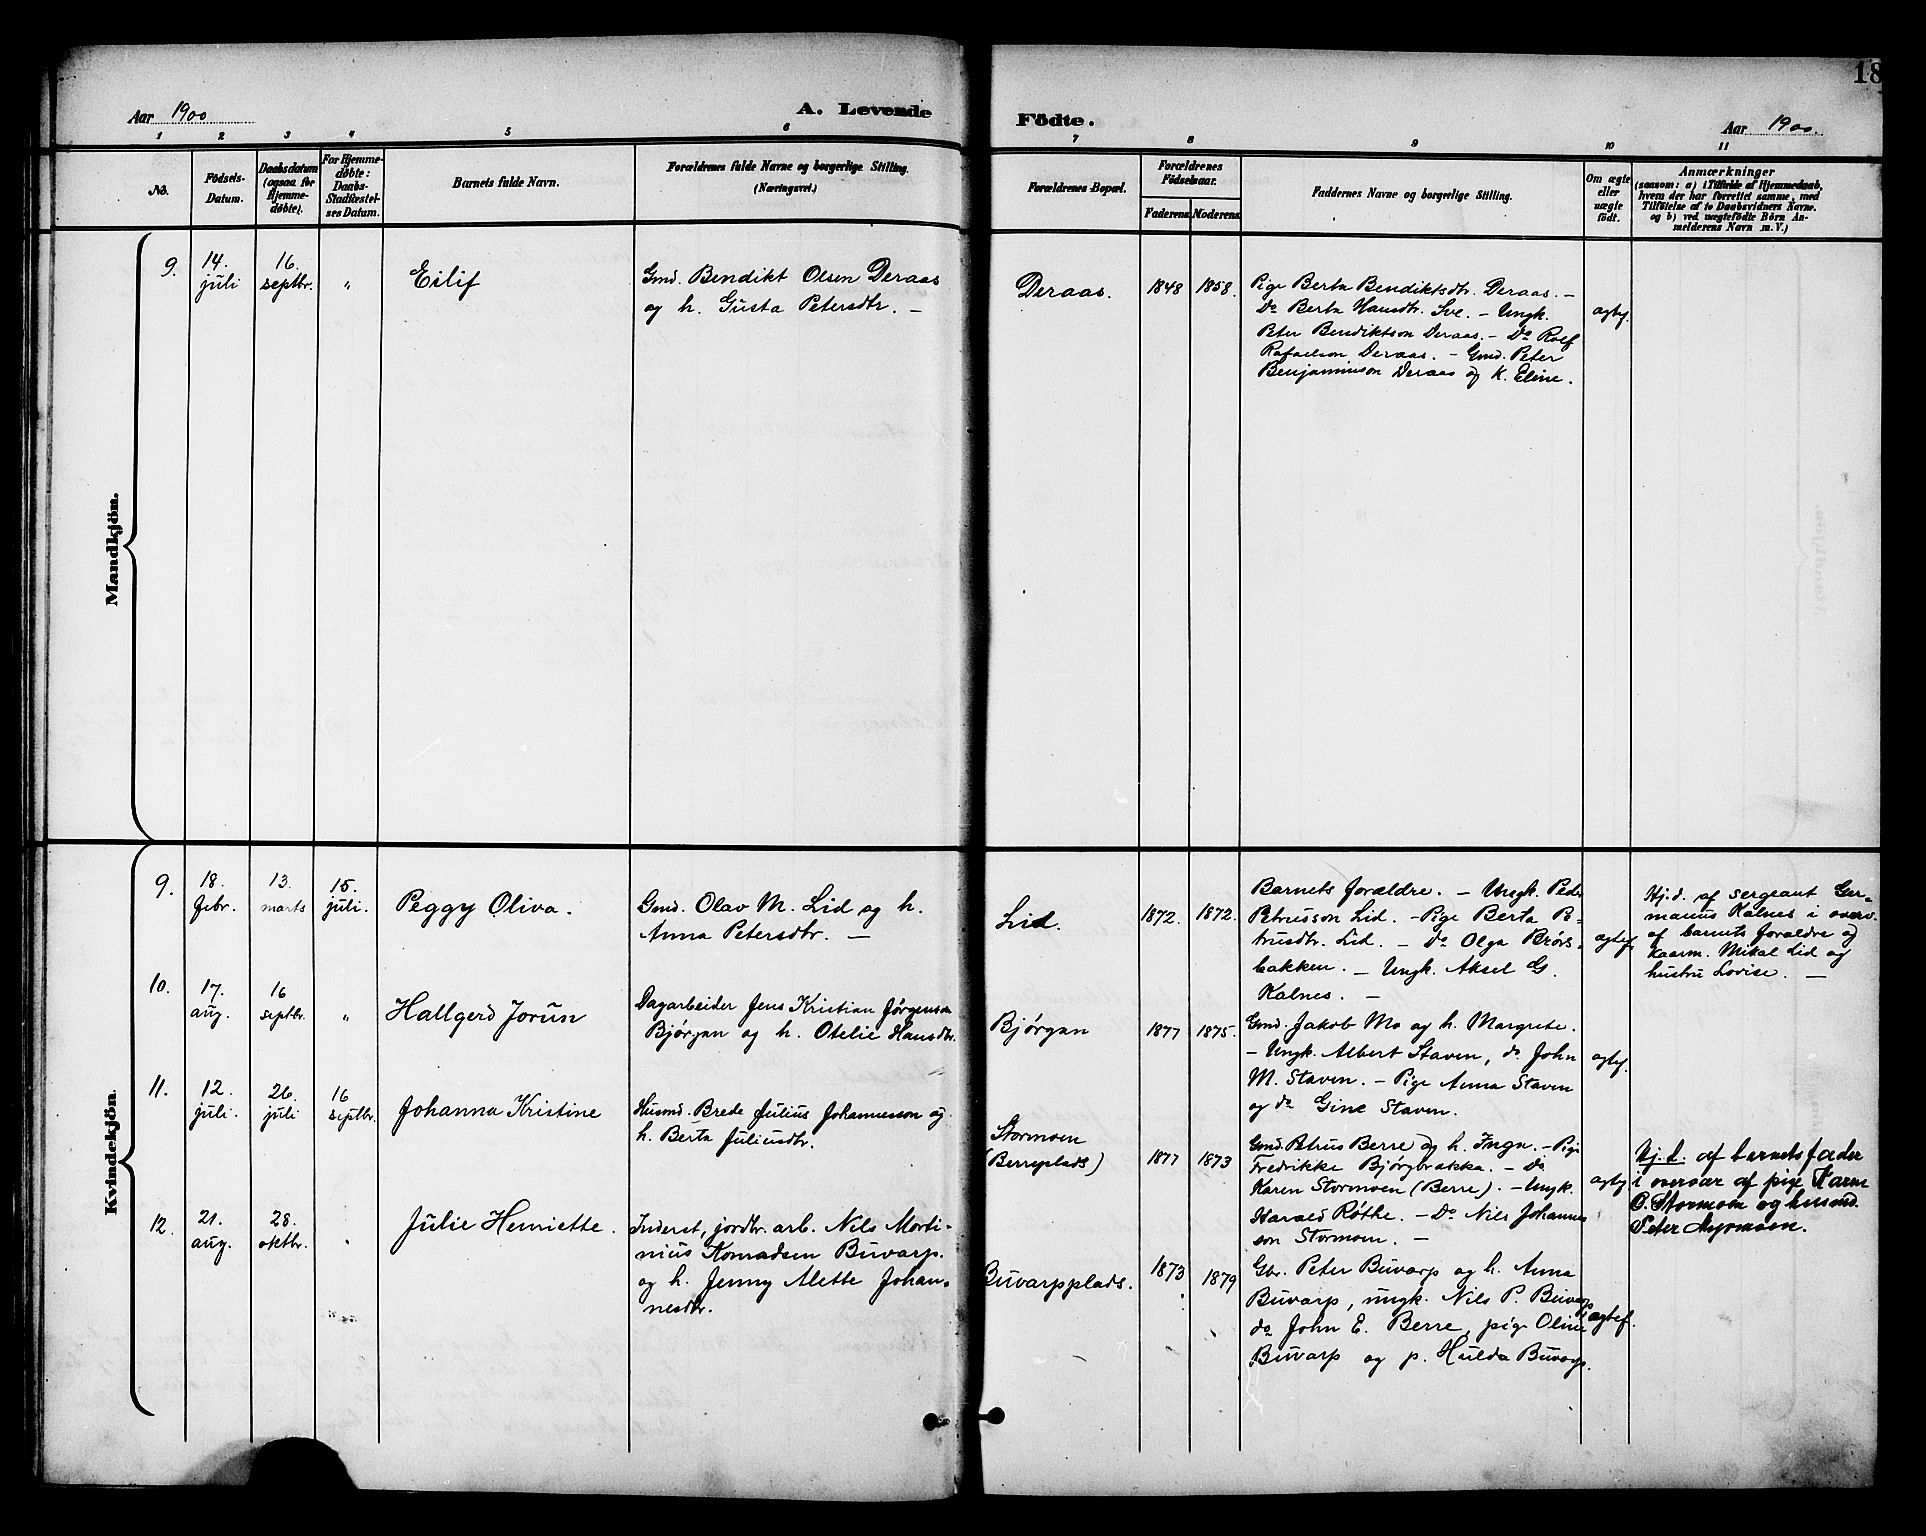 18
Aar 1900
A. Levende
Födte.
Aar 1900.
1 2 3 4 5 6 7 8 9 10 11
No.
Födsels-
Datum.
Daabsdatum
(ogsaa for
Hjemme-
døbte).
For Hjemme-
døbte:
Daabs-
Stadfæstel-
ses Datum.
Barnets fulde Navn.
Forældrenes fulde Navne og borgerlige Stilling.
(Næringsvei.)
Forældrenes Bopæl.
Forældrenes
Födselsaar.
Faderens. Moderens.
Faddernes Navne og borgerlige Stilling.
Om ægte
eller
uægte
født.
Anmærkninger
(saasom: a) i Tilfælde af Hjemmedaab,
hvem der har forrettet samme, med
Tilföielse af to Daabsvidners Navne.
og b) ved uægtefödte Börn An-
melderens Navn m. V.)
Mandkjön.
9.
14.
juli
16.
septbr.
"
Eilif
Gmd. Bendikt Olsen Deraas
og h. Gusta Petersdtr. —
Deraas.
1848
1858.
Pige Berta Bendiktsdtr. Deraas. —
Do Berta Hansdtr. Sve. — Ungk.
Peter Bendiktson Deraas. — Do Rolf
Rafaelson Deraas. — Gmd. Peter
Benjaminson Deraas og K. Eline.
Kvindekjön.
9.
18.
febr.
13.
marts
15.
juli.
Peggy Oliva.
Gmd. Olav M. Lid og h.
Anna Petersdtr. —
Lid.
1872.
1872.
Barnets forældre. — Ungk. Peder
Petrusson Lid. — Pige Berta Pe-
trusdtr. Lid. — do Olga Brørs-
bakken. — Ungk. Aksel G.
Kalnes. —
ægtef.
Hj.d. af sergeant Ger-
manus Kalnes i overv.
af barnets forældre og
Kaarm. Mikal Lid og
hustru Lovise. —
10.
17.
aug.
16
septbr.
"
Hallgerd Jorun
Dagarbeider Jens Kristian Jørgenson
Bjørgan og h. Otelie Hansdtr.
Bjørgan
1877
1875.
Gmd. Jakob Mo og h. Margrete.
— Ungk. Albert Staven, do John
M. Staven. — Pige Anna Staven
og do Gine Staven.
ægtef.
11.
12.
juli.
26.
juli
16
septbr.
Johanna Kristine
Husmd. Brede Julius Johannesson og
h. Berta Juliusdtr.
Stormoen
(Berreplads)
1877
1873
Gmd. Petrus Berre og h. Inga. — Pige
Fredrikke Bjørgbakka. — Do
Karen Stormoen (Berre). — Ungk.
Harald Røthe. — Do Nils Johannes
son Stormoen. —
Hj.d. af barnets fader
i overvær af pige Karen
O. Stormoen og husmd.
Peter Myrmoen.
12.
21.
aug.
28.
oktbr.
"
Julie Henriette.
Inderst, jordbr. arb. Nils Morti-
nius Konradsen Buvarp.
og h. Jenny Alette Johan-
nesdtr.
Buvarpplads.
1873
1879
Gbr. Peter Buvarp og h. Anna
Buvarp, ungk. Nils P. Buvarp
do John E. Berre, pige Oline
Buvarp og p. Hulda Buvarp.
ægtef.